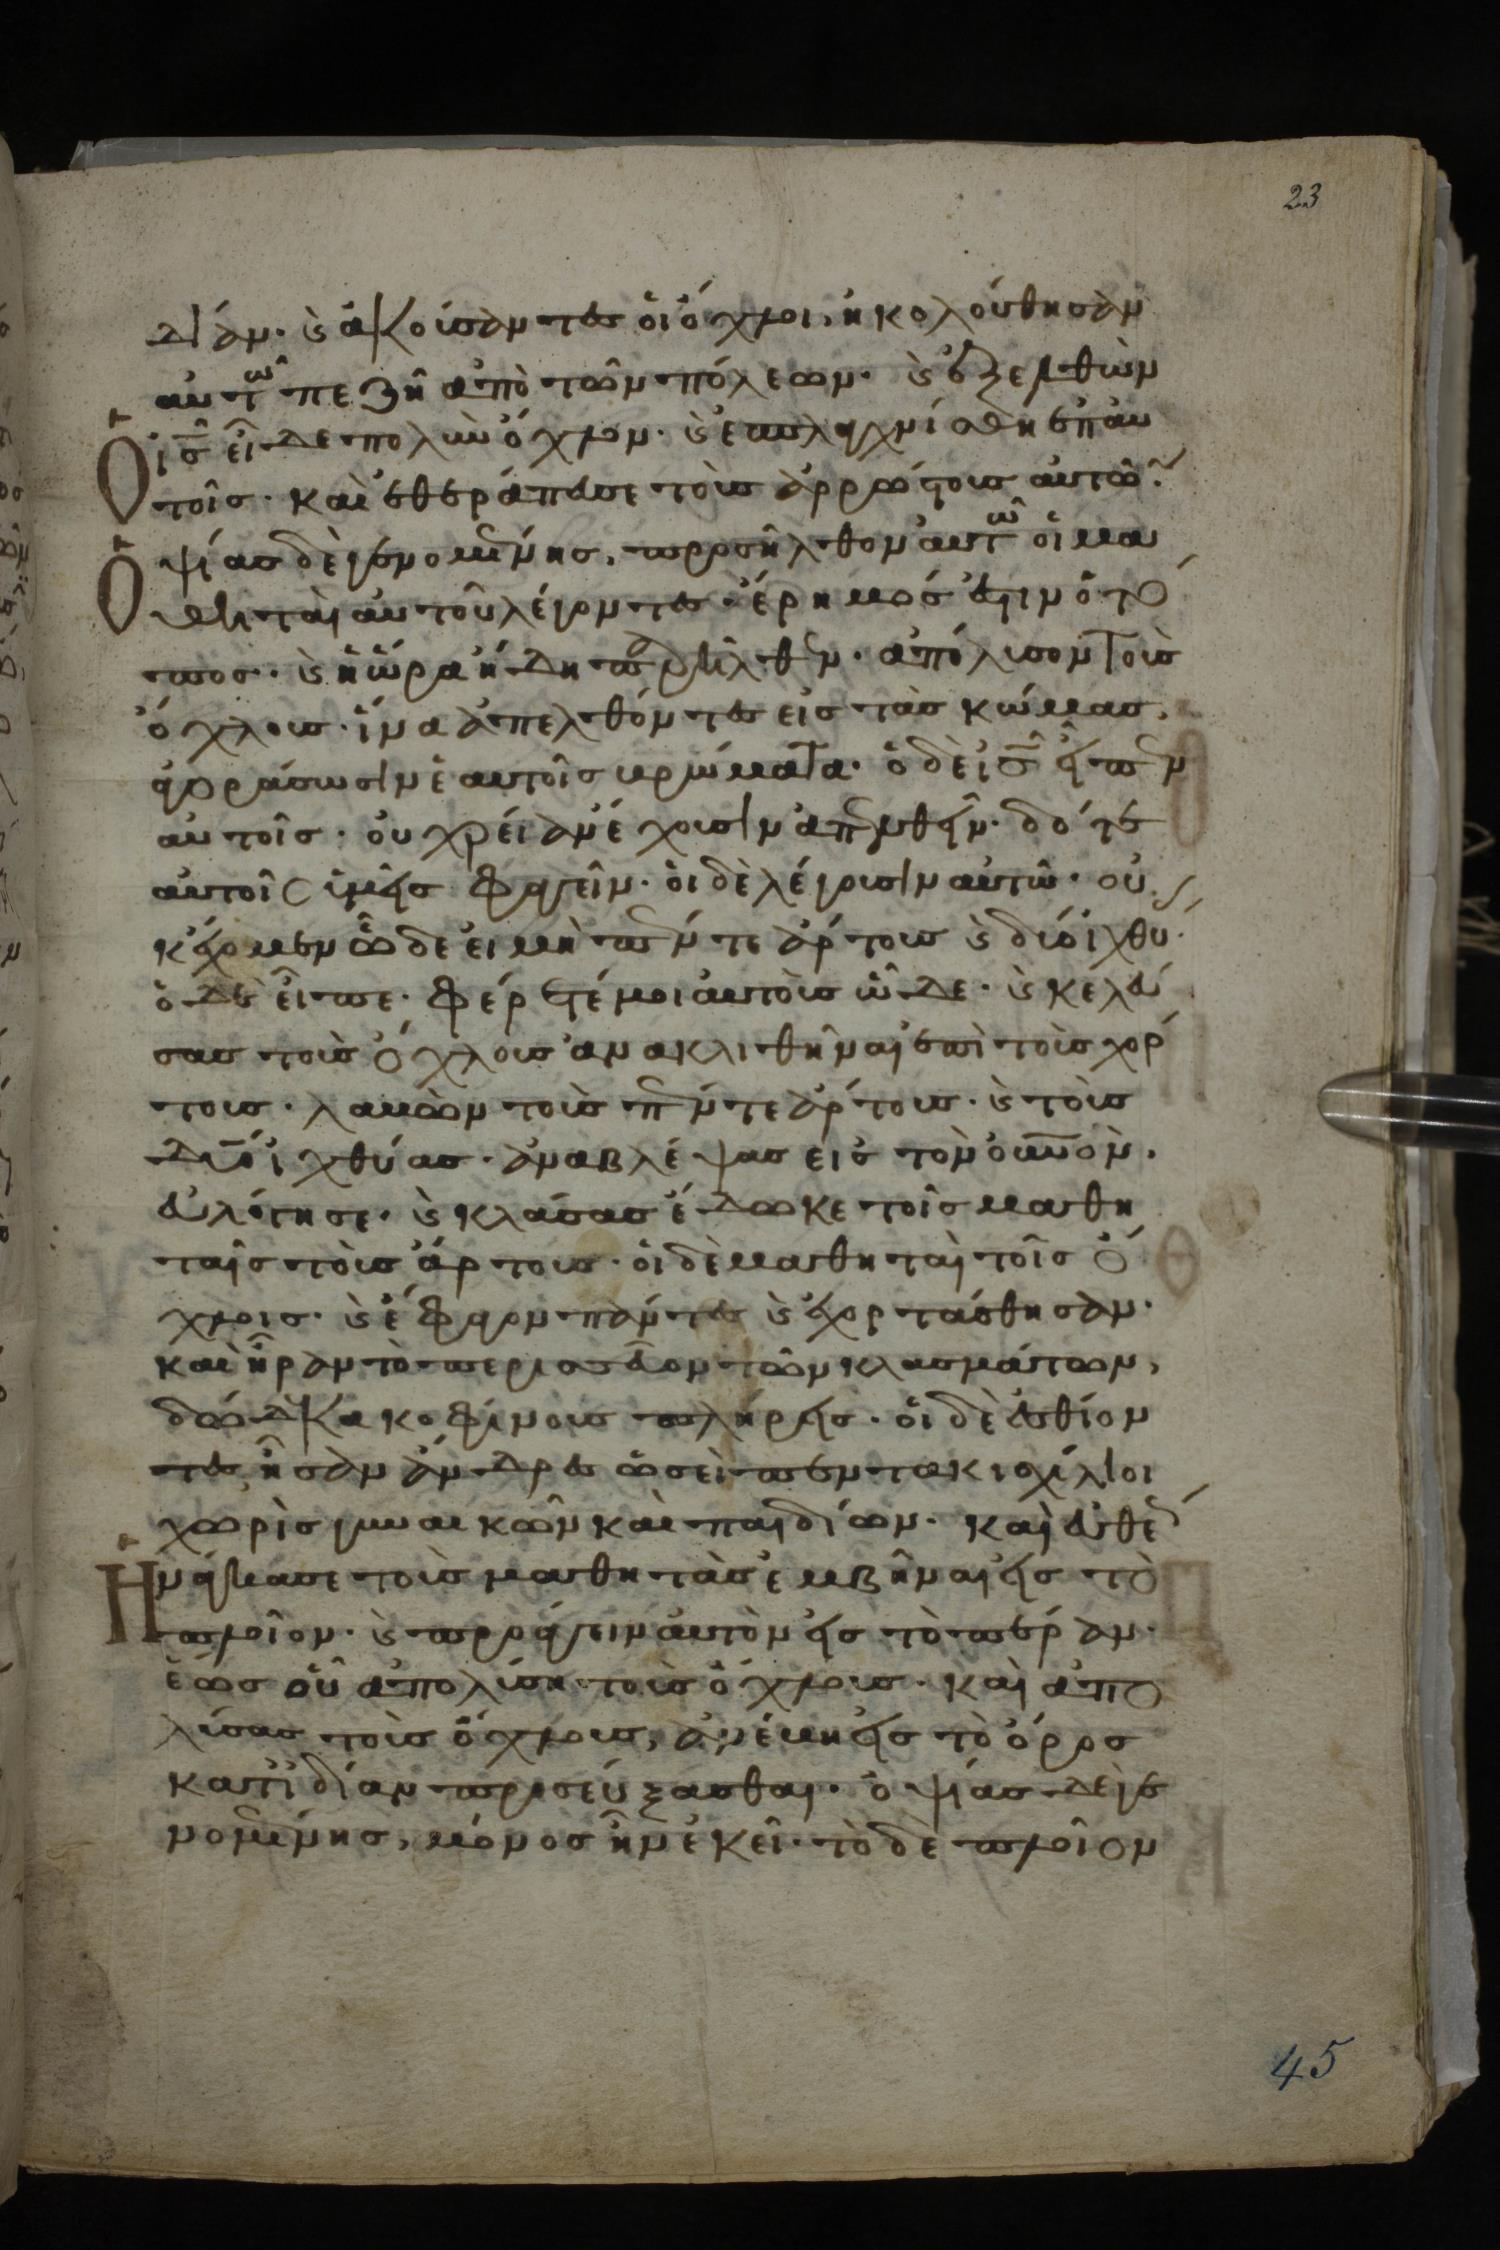 23
δίαν· κ(αὶ) ἀκούσαντες οἱ ὄχλοι, ἠκολούθησαν
αὐτῶ πεζῆ ἀπὸ τῶν πόλεων· κ(αὶ) ἐξελθὼν
ὁ ι̅ς̅ εἶδε πολὺν ὄχλον· κ(αὶ) ἐσπλαγχνίσθη ἐπ' αὐ
τοῖς· καὶ ἐθεράπευσε τοὺς ἀρρώστους αὐτῶν·
Ὀψίας δὲ γενομένης, προσῆλθον αὐτῶ οἱ μα
θηταὶ αὐτοῦ λέγοντες· ἔρημός ἐστιν ὁ τό
πος· κ(αὶ) ἡ ὥρα ἤδη παρῆλθεν· ἀπόλυσον τοὺς
ὄχλους· ἵνα ἀπελθόντες εἰς τὰς κώμας,
ἀγοράσωσιν ἑαυτοῖς βρώματα· ὁ δὲ ι̅ς̅ εἶπεν
αὐτοῖς· οὐ χρείαν ἔχουσιν ἀπελθεῖν· δότε
αὐτοῖς ὑμεῖς φαγεῖν· οἱ δὲ λέγουσιν αὐτῶ· οὐ
κ ἔχομεν ὧδε εἰ μὴ πέντε ἄρτους κ(αὶ) δύο ἰχθύ·
ὁ δὲ εἶπε· φέρετέ μοι αὐτοὺς ὧδε· κ(αὶ) κελεύ
σας τοὺς ὄχλους ἀνακλιθῆναι ἐπὶ τοὺς χόρ
τους· λαβὼν τοὺς πέντε ἄρτους· κ(αὶ) τοὺς
δύο ἰχθύας· ἀναβλέψας εἰς τὸν ου̅νον,
εὐλόγησε· κ(αὶ) κλάσας ἔδωκε τοῖς μαθη
ταῖς τοὺς ἄρτους· οἱ δὲ μαθηταὶ τοῖς ὄ
χλοις· κ(αὶ) ἔφαγον πάντες κ(αὶ) ἐχορτάσθησαν·
καὶ ἦραν τὸ περισσεῦον τῶν κλασμάτων,
δώδεκα κοφίνους πλήρεις· οἱ δὲ ἐσθίον
τες ἦσαν ἄνδρες ὡσεὶ πεντακισχίλιοι
χωρὶς γυναικῶν καὶ παιδίων· καὶ εὐθέ(ως)
ἠνάγκασε τοὺς μαθητὰς ἐμβῆναι εἰς τὸ
πλοῖον· κ(αὶ) προάγειν αὐτὸν εἰς τὸ πέραν·
ἕως οὗ ἀπολύσῃ τοὺς ὄχλους· καὶ ἀπο
λύσας τοὺς ὄχλους, ἀνέβη εἰς τὸ ὄρος
κατ' ἰδίαν προσεύξασθαι· ὀψίας δὲ γε
νομένης, μόνος ἦν ἐκεῖ· τὸ δὲ πλοῖον
45